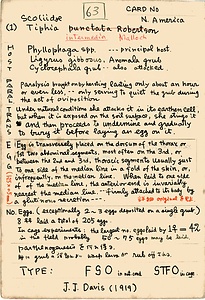 63
CARD No
Scoliidae
N. America
(1) Tiphia punctata Robertson
intermedia Malloch
HOST
Phyllophaga spp. ... principal host.
Ligyrus gibbosus, Anomala grub
Cyclocephala grub .. also attacked
PARALYSIS
Paralysis brought about by stinging lasting only about an hour
or even less, - only serving to quiet the grub during
the act of oviposition.
Under natural conditions she attacks it in its earthen cell
but when it is exposed on the soil surface, she stings it
and then proceeds to undermine and gradually
to bury it before laying an egg on it.
EGG
Egg is transversally placed on the dorsum of the thorax, or
1st two abdominal segments, most often on the 3rd, or
between the 2nd and 3rd, thoracic segments usually just
to one side of the median line in a fold of the skin, or,
infrequently, on the median line. When laid to one side
of the median line, the anterior end is invariably
nearest the median line - firmly attached to its body by
a glutinous secretion
No. Eggs. (exceptionally 2 eggs deposited on a single grub)
laid a total of 205 eggs
In cage experiments: the largest no. eggs laid by 14 = 42
in the field probably 50 - 75 eggs may be laid
parthenogenesis
TYPE: FSO STFO
J.J. Davis (1919)